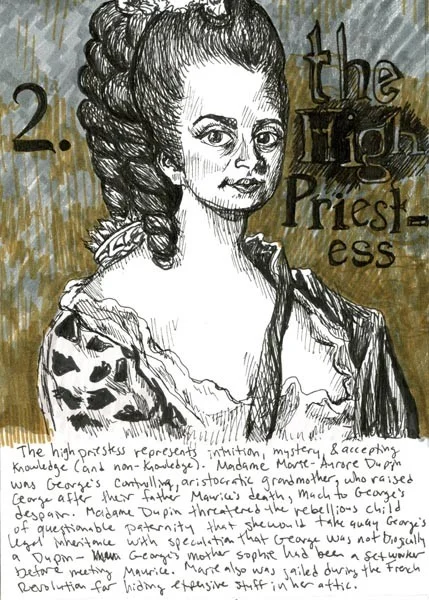 2.
the
High
Priest-
ess
The high priestess represents intuition, mystery, & accepting
Knowledge (and non-Knowledge). Madame Marie-Aurore Dupin
was George's controlling, aristocratic grandmother, who raised
George after their father Maurice's death, much to George's
despair. Madame Dupin threatened the rebellious child
of questionable paternity that she would take away George's
legal inheritance with speculation that George was not biologically
a Dupin- George's mother Sophie had been a sex worker
before meeting Maurice. Marie also was jailed during the French
Revolution for hiding expensive stuff in her attic.